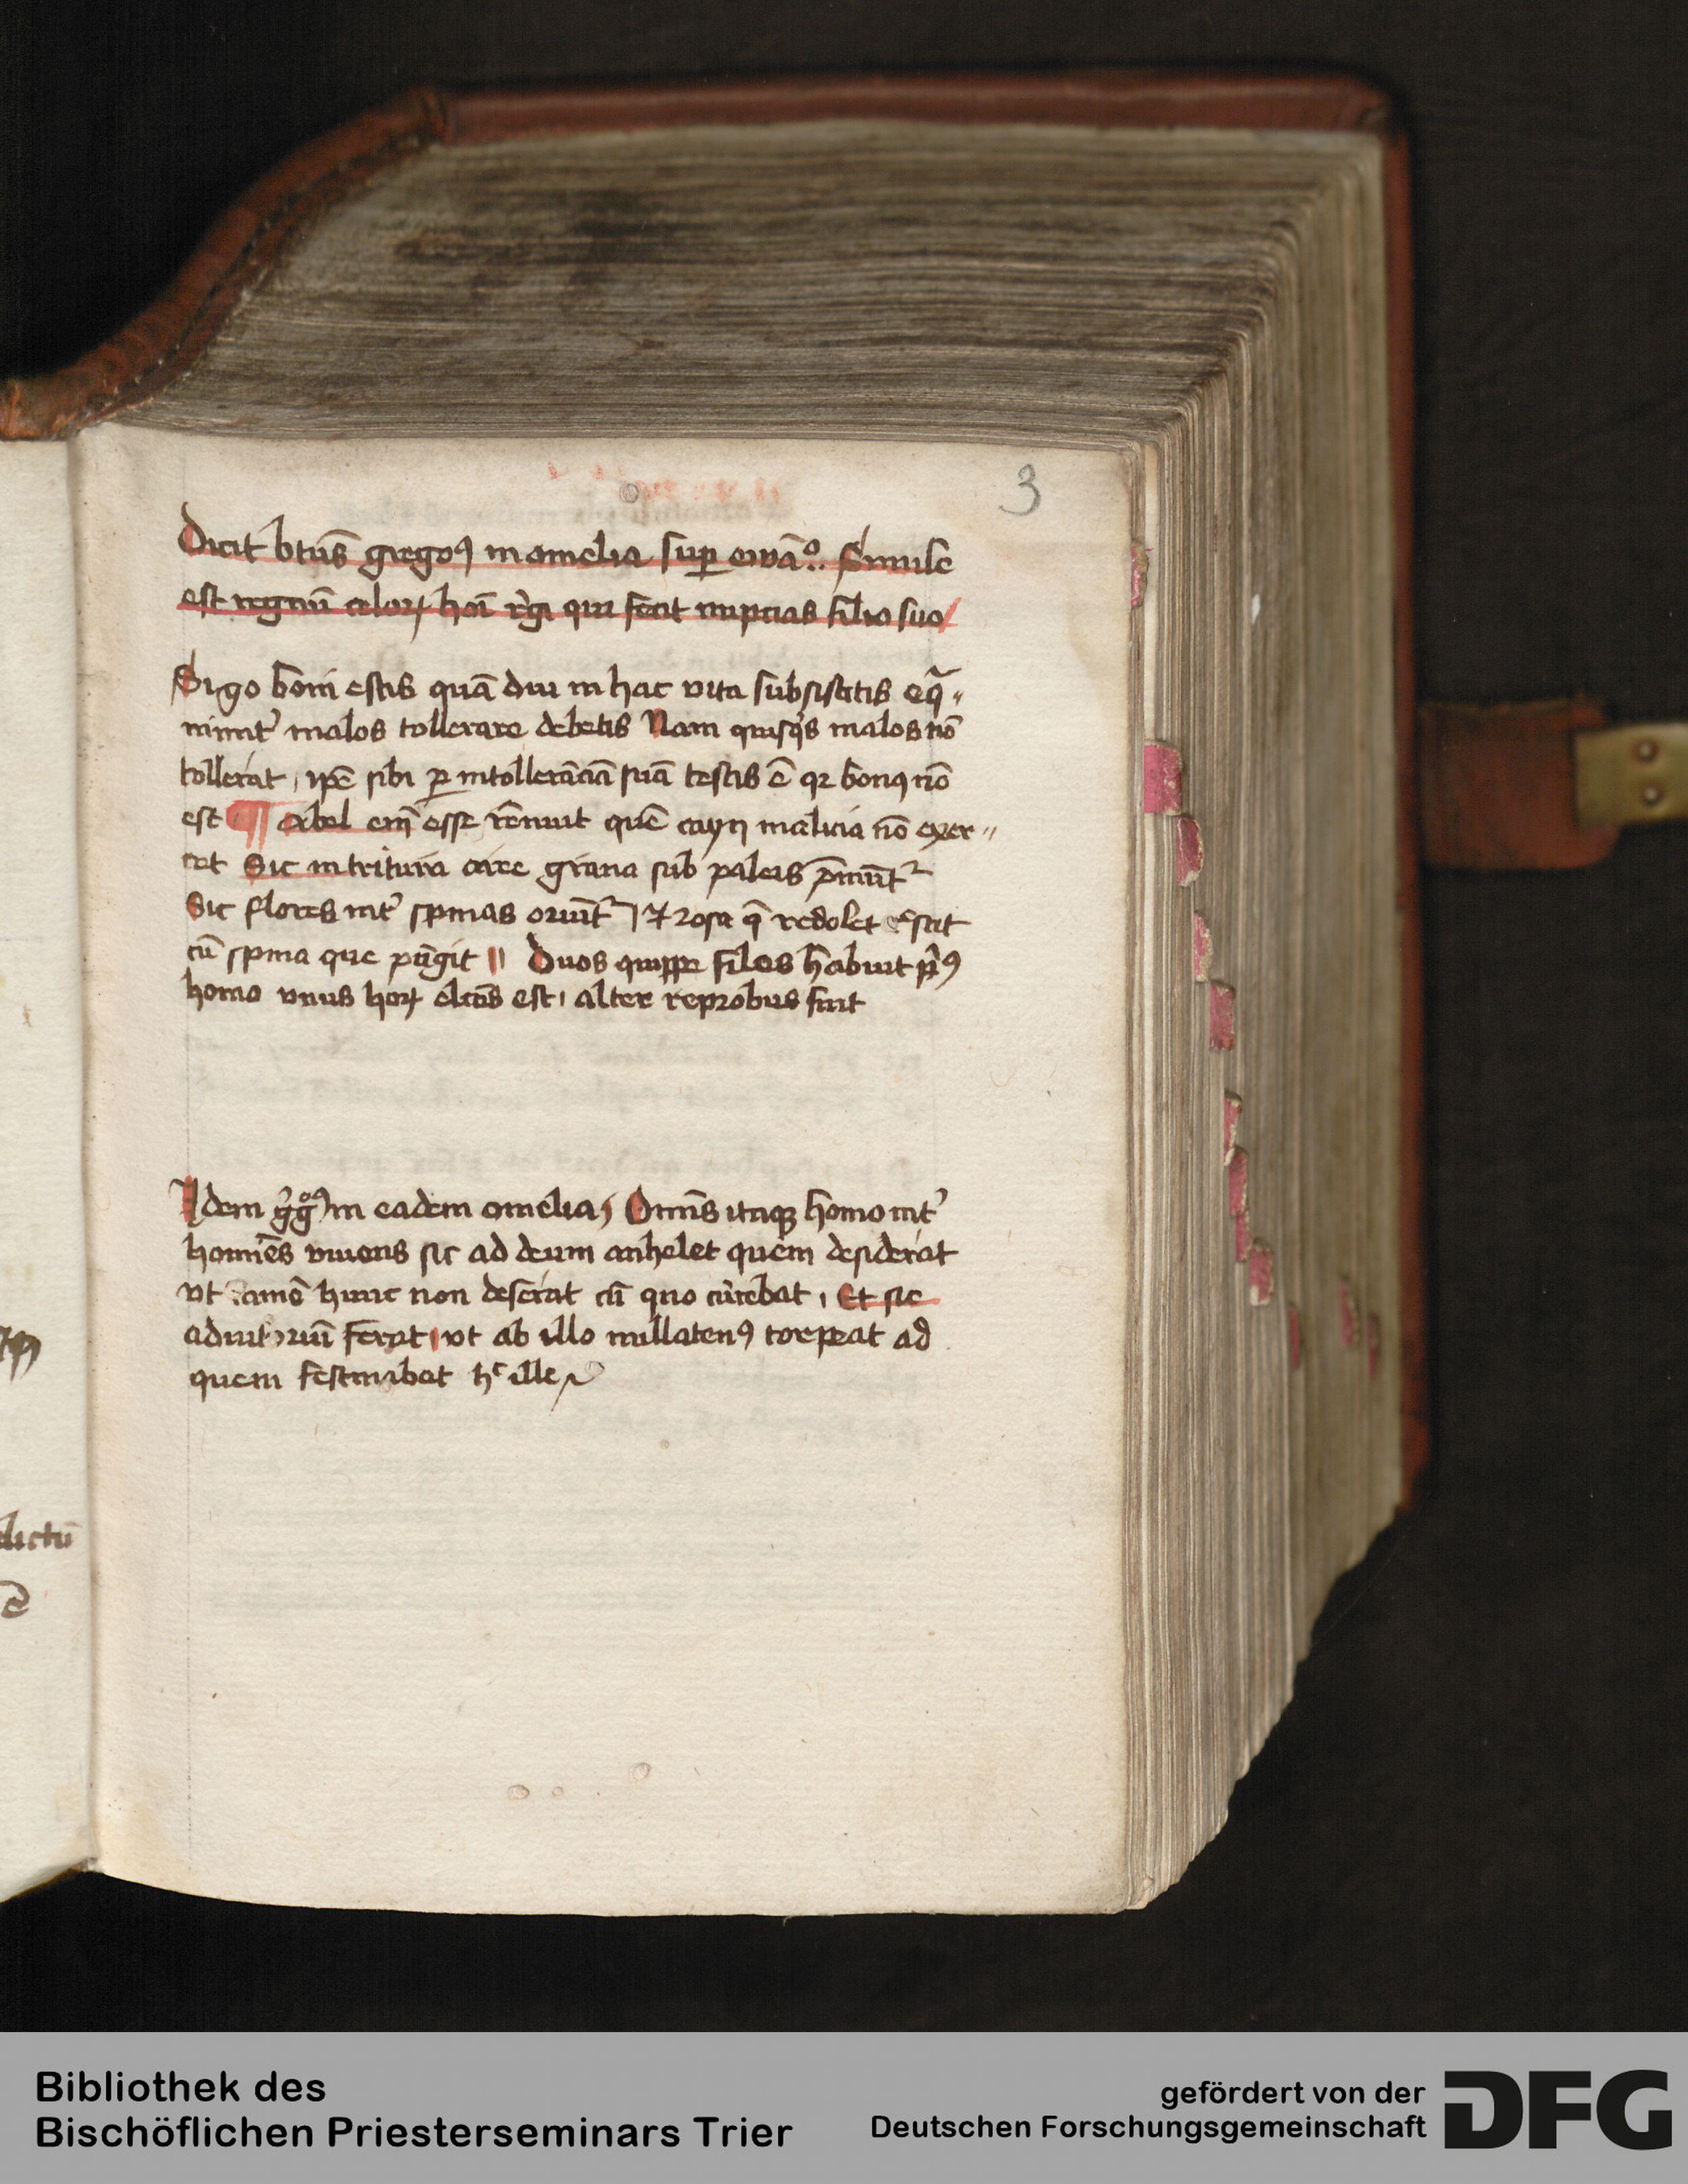 3
Dicit btūs gregoꝰ in omelia sup ewāº. Simile
est regnū celoꝝ hoī rͥgi qui fecit nupcias filio suo
Si gͦo boni estis quā diu in hac vita subsistitis eq̄
nimit᷒ malos tollerare debetis Nam quisqͥs malos nō
tollerat, ipē sibi ꝑ intollerāciā suā testis ē qꝛ bonꝰ nō
est ¶ Abel em̄ esse rēnuit quē cayn malicia nō exer
cet Sic in tritura aree grana sub paleis p̄munt᷑
Sic flores int᷒ spinas oriūt᷑ ⁊ rosa q̄ redolet cͬscit
cū spina que pūgit || Duos quippe filios hābuit pͥmꝰ
homo vnus hoꝝ elc̄us est, alter reprobus fuit
Idem gͥgͦꝰ in eadem omelia, Omīs itaqꝫ homo int᷒
homīes viuens sic ad deum anhelet quem desiderat
vt tamē hunc non deserat cū quo currebat, Et sic
adiutoriū ferat, vt ab illo nullatenꝰ torpeat ad
quem festinabat hͨ ille
lictū
Bibliothek des
Bischöflichen Priesterseminars Trier
gefördert von der
Deutschen Forschungsgemeinschaft
DFG